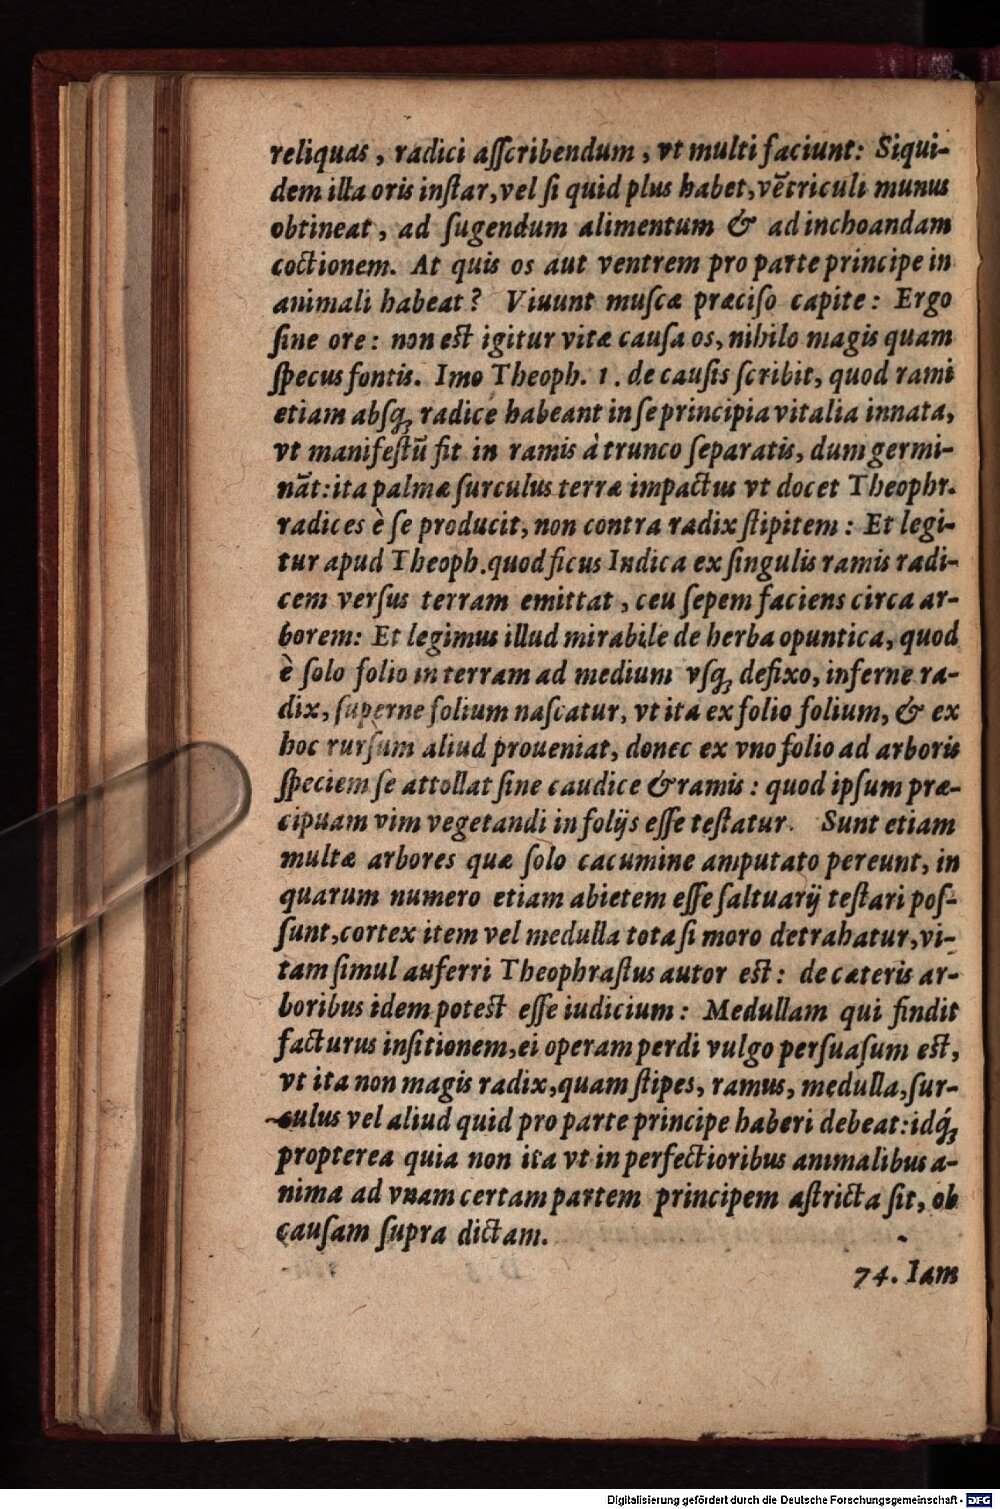 reliquas, radici aſſcribendum, vt multi faciunt: Siqui-
dem illa oris inſtar, vel ſi quid plus habet, vẽtriculi munus
obtineat, ad ſugendum alimentum & ad inchoandam
coctionem. At quis os aut ventrem pro parte principe in
animali habeat? Viuunt muſcæ præciſo capite: Ergo
ſine ore: non eſt igitur vitæ cauſa os, nihilo magis quam
ſpecus fontis. Imo Theoph. 1. de cauſis ſcribit, quod rami
etiam abſq; radice habeant in ſe principia vitalia innata,
vt manifeſtũ fit in ramis à trunco ſeparatis, dum germi-
nãt: ita palmæ ſurculus terræ impactus vt docet Theophr.
radices è ſe producit, non contra radix ſtipitem: Et legi-
tur apud Theoph. quod ficus Indica ex ſingulis ramis radi-
cem verſus terram emittat, ceu ſepem faciens circa ar-
borem: Et legimus illud mirabile de herba opuntica, quod
è ſolo folio in terram ad medium vſq; defixo, inferne ra-
dix, ſuperne folium naſcatur, vt ita ex folio folium, & ex
hoc rurſum aliud proueniat, donec ex vno folio ad arboris
ſpeciem ſe attollat ſine caudice & ramis: quod ipſum præ-
cipuam vim vegetandi in folijs eſſe teſtatur. Sunt etiam
multæ arbores quæ ſolo cacumine amputato pereunt, in
quarum numero etiam abietem eſſe ſaltuarij teſtari poſ-
ſunt, cortex item vel medulla tota ſi moro detrahatur, vi-
tam ſimul auferri Theophraſtus autor est: de cæteris ar-
boribus idem potest eſſe iudicium: Medullam qui findit
facturus inſitionem, ei operam perdi vulgo perſuaſum est,
vt ita non magis radix, quam ſtipes, ramus, medulla, ſur-
culus vel aliud quid pro parte principe haberi debeat: idq́;
propterea quia non ita vt in perfectioribus animalibus a-
nima ad vnam certam partem principem aſtricta ſit, ob
cauſam ſupra dictam.
74. Iam
Digitalisierung gefördert durch die Deutsche Forschungsgemeinschaft - DFG